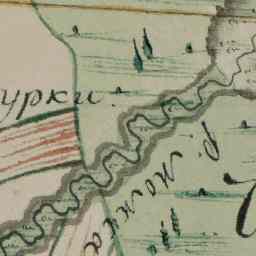 урки.
р. Мокша